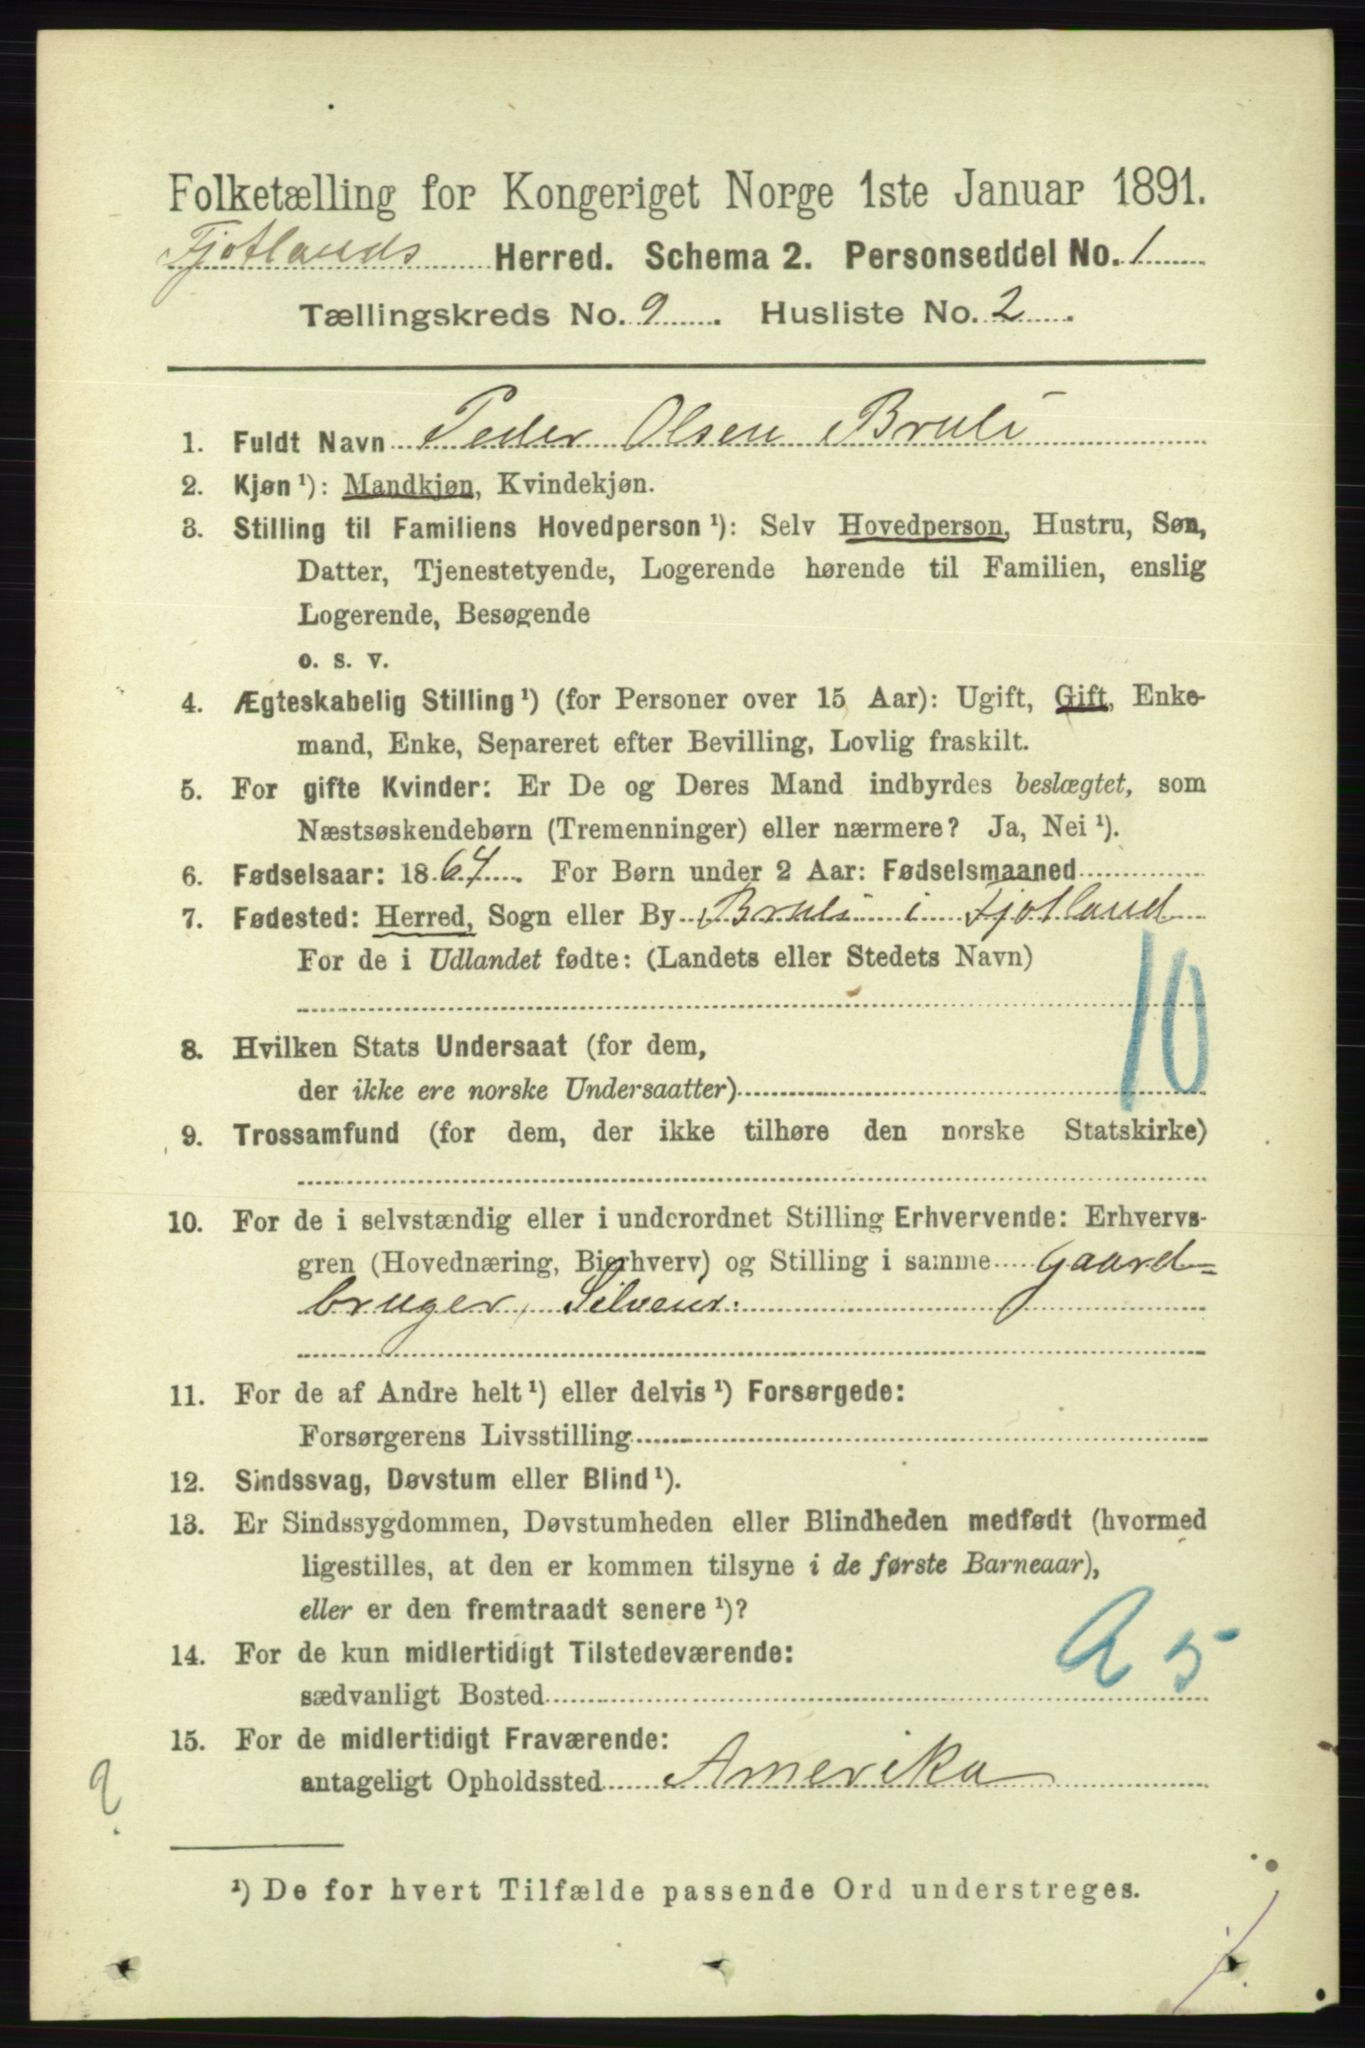 Folketælling for Kongeriget Norge 1ste Januar 1891.
Fjotlands Herred. Schema 2. Personseddel No. 1
Tællingskreds No. 9. Husliste No. 2.
1. Fuldt Navn Peder Olsen Bruli
2. Kjøn ¹): Mandkjøn, Kvindekjøn.
3. Stilling til Familiens Hovedperson ¹): Selv Hovedperson, Hustru, Søn,
Datter, Tjenestetyende, Logerende hørende til Familien, enslig
Logerende, Besøgende
o. s. v.
4. Ægteskabelig Stilling ¹) (for Personer over 15 Aar): Ugift, Gift, Enke-
mand, Enke, Separeret efter Bevilling, Lovlig fraskilt.
5. For gifte Kvinder: Er De og Deres Mand indbyrdes beslægtet, som
Næstsøskendebørn (Tremenninger) eller nærmere? Ja, Nei ¹).
6. Fødselsaar: 1864. For Børn under 2 Aar: Fødselsmaaned
7. Fødested: Herred, Sogn eller By Bruli i Fjotland
For de i Udlandet fødte: (Landets eller Stedets Navn)
10
8. Hvilken Stats Undersaat (for dem,
der ikke ere norske Undersaatter)
9. Trossamfund (for dem, der ikke tilhøre den norske Statskirke)
10. For de i selvstændig eller i underordnet Stilling Erhvervende: Erhvervs-
gren (Hovednæring, Bierhverv) og Stilling i samme Gaard=
bruger, Selveier.
11. For de af Andre helt ¹) eller delvis ¹) Forsørgede:
Forsørgerens Livsstilling
12. Sindssvag, Døvstum eller Blind ¹).
13. Er Sindssygdommen, Døvstumheden eller Blindheden medfødt (hvormed
ligestilles, at den er kommen tilsyne i de første Barneaar),
eller er den fremtraadt senere ¹)?
14. For de kun midlertidigt Tilstedeværende:
sædvanligt Bosted
15. For de midlertidigt Fraværende:
antageligt Opholdssted Amerika
¹) De for hvert Tilfælde passende Ord understreges.